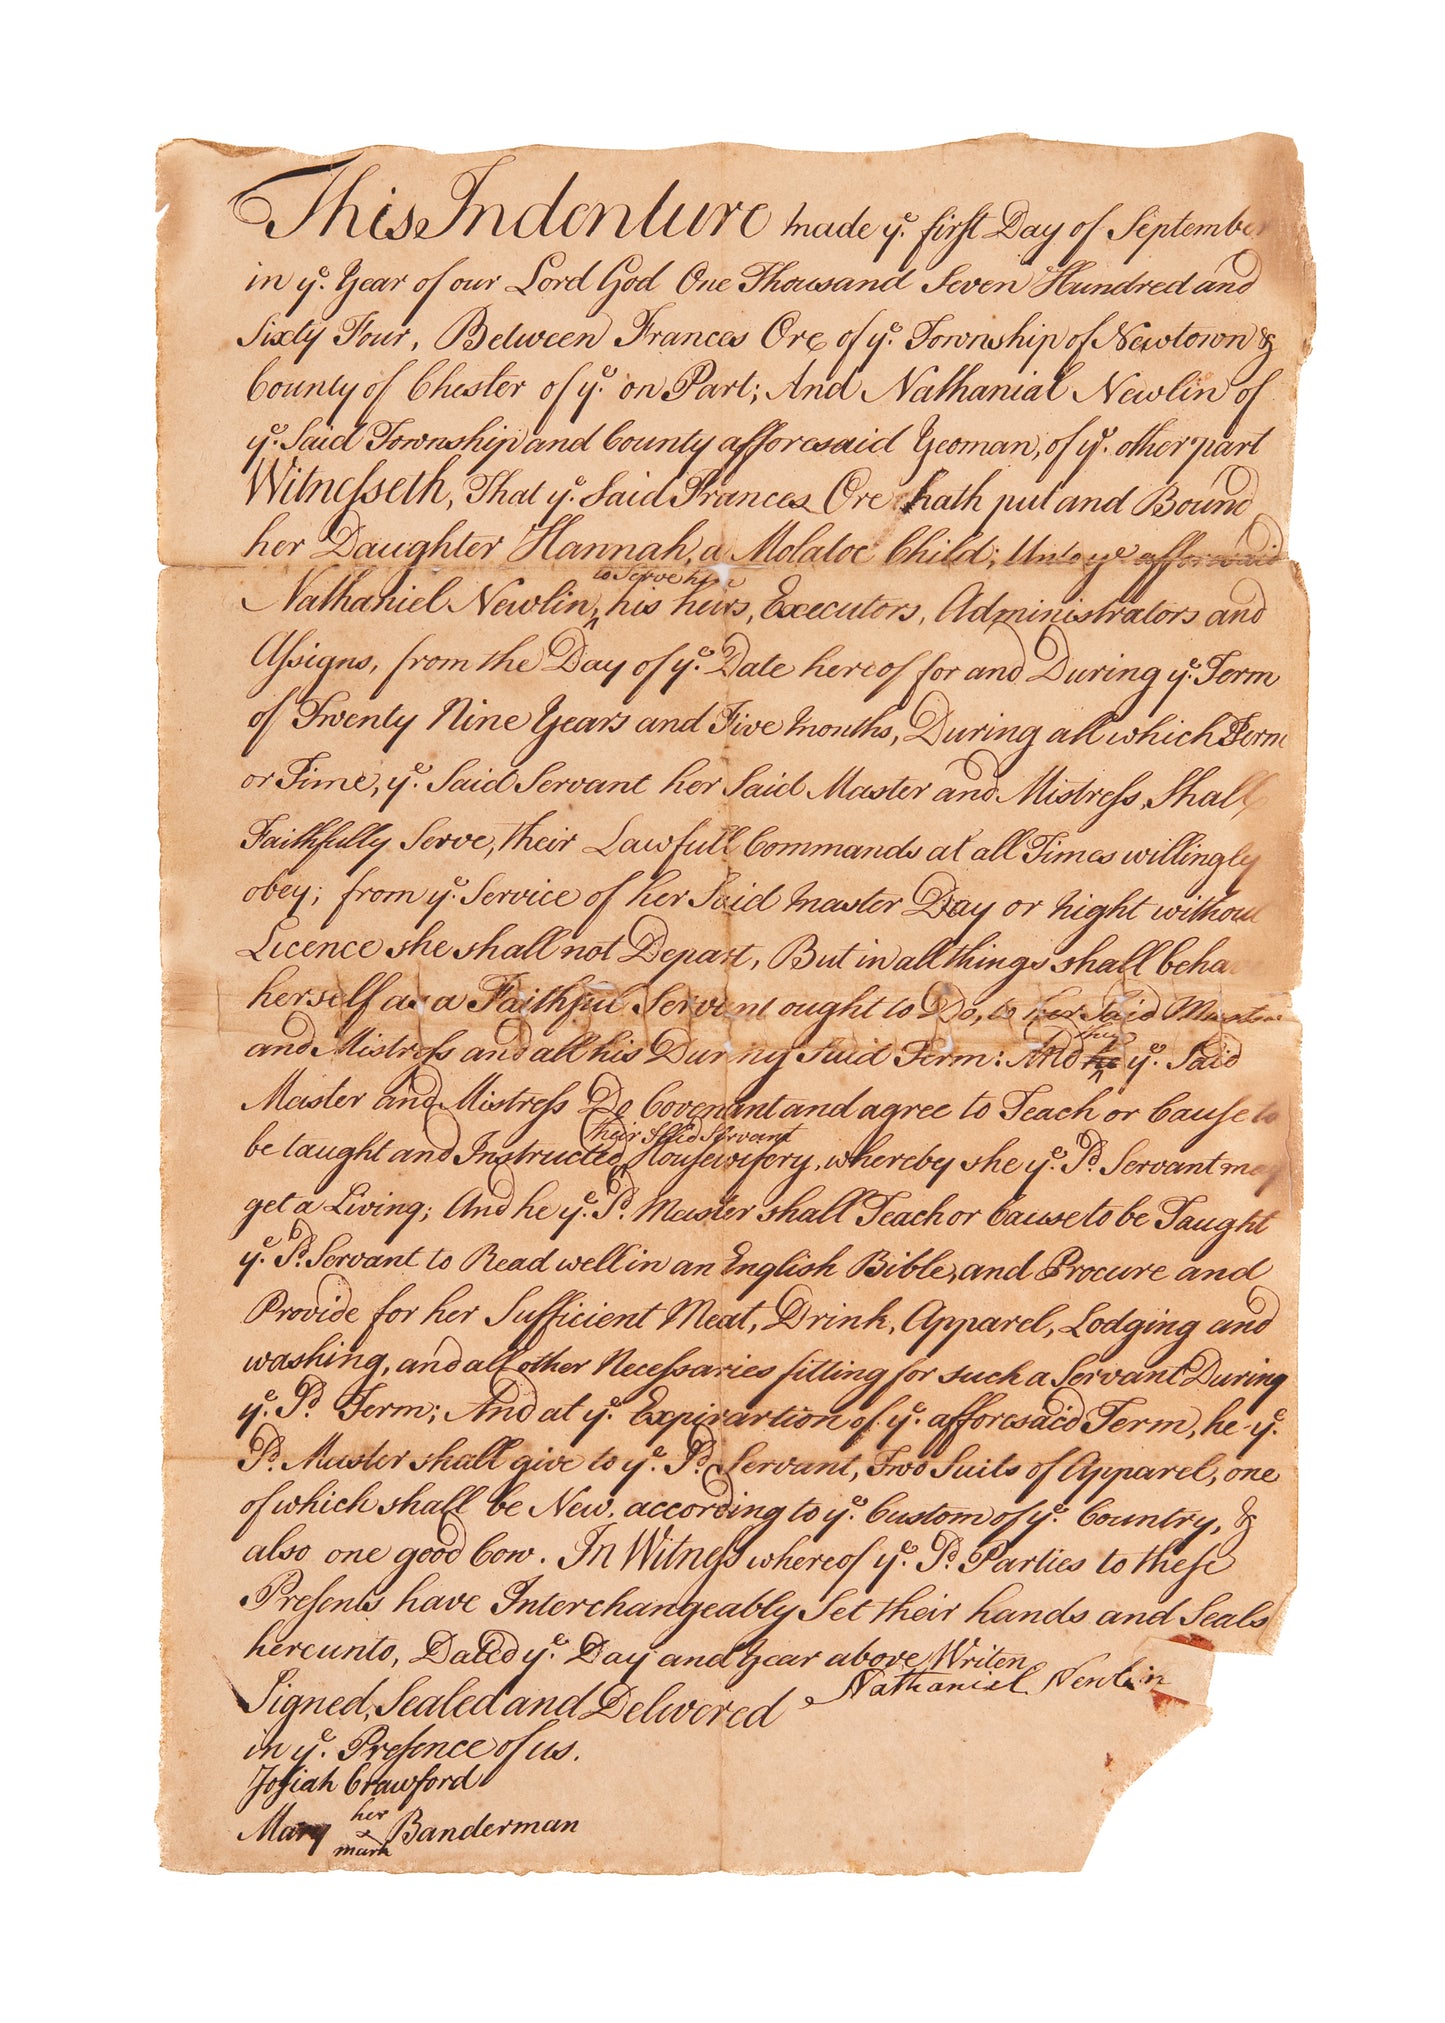 This Indenture made ye. first Day of September
in ye. Year of our Lord God One Thousand Seven Hundred and
Sixty Four, Between Frances Ore of ye. Township of Newtown &
County of Chester of ye. on Part; And Nathanial Newlin of
ye. Said Township and County afforesaid Yeoman, of ye. other part
Witnesseth, That ye. Said Frances Ore hath put and Bound
her Daughter Hannah, a Molatoe Child; Unto ye afforesaid
to Serve him
Nathaniel Newlin, ^ his heirs, Executors, Administrators and
Assigns, from the Day of ye. Date hereof for and During ye. Term
of Twenty Nine Years and Five Months, During all which Term
or Time, ye. Said Servant her Said Master and Mistress, Shall
Faithfully Serve, their Lawfull Commands at all Times willingly
obey; from ye. Service of her Said Master Day or Night without
Licence she shall not Depart, But in all things shall behave
herself as a Faithful Servant ought to Do, to her Said Master
and Mistress and all his During Said Term: And ^ they ye. Said
Master and Mistress Do Covenant and agree to Teach or Cause to
their Said Servant
be taught and Instructed ^ Housewifery, whereby she ye. Sd. Servant may
get a Living; And he ye. Sd. Master shall Teach or Cause to be Taught
ye. Sd. Servant to Read well in an English Bible, and Procure and
Provide for her Sufficient Meat, Drink, Apparel, Lodging and
washing, and all other Necessaries fitting for such a Servant During
ye. Sd. Term; And at ye. Expirartion of ye. afforesaid Term, he ye.
Sd. Master shall give to ye. Sd. Servant, Two Suits of Apparel, one
of which shall be New, according to ye. Custom of ye. Country, &
also one good Cow. In Witness whereof ye. Sd. Parties to these
Presents have Interchangeably Set their hands and Seals
hereunto, Dated ye. Day and Year above Writen
Nathaniel Newlin
Signed, Sealed and Delivered
in ye. Presence of us.
Josiah Crawford
her
Mary x Banderman
mark